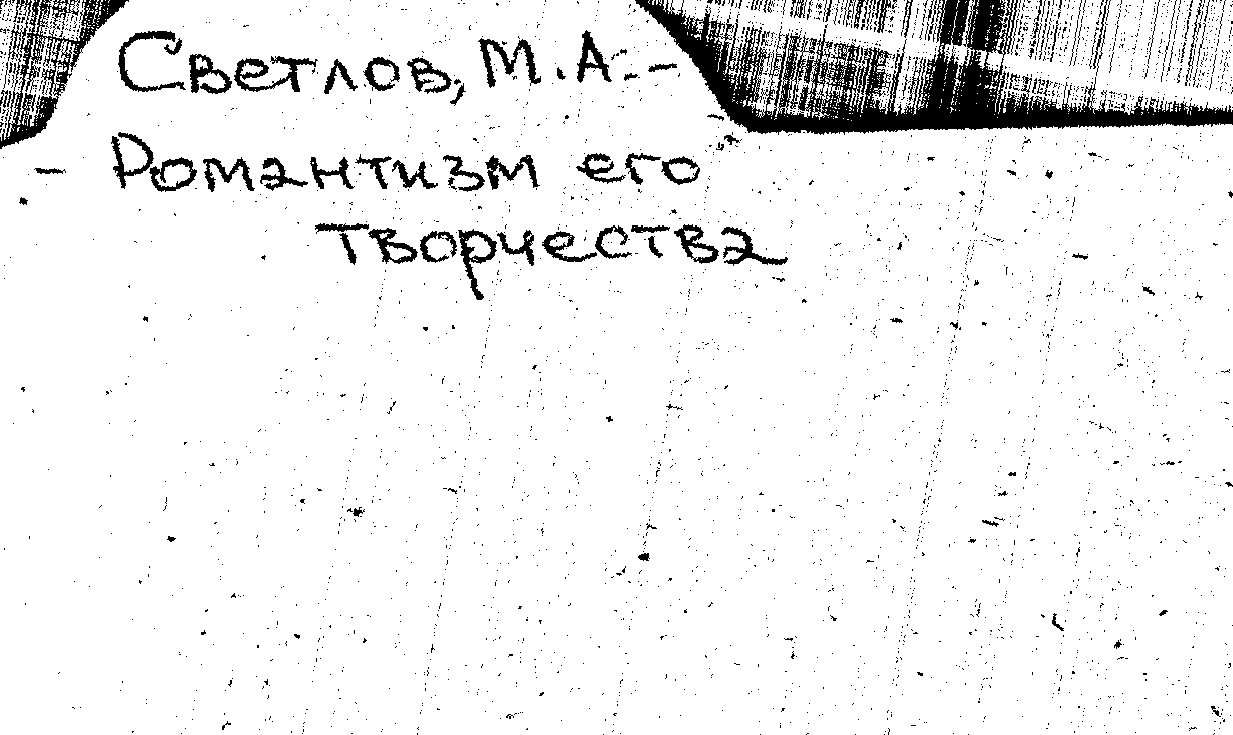 Светлов, М.А. -
- Романтизм его
творчества